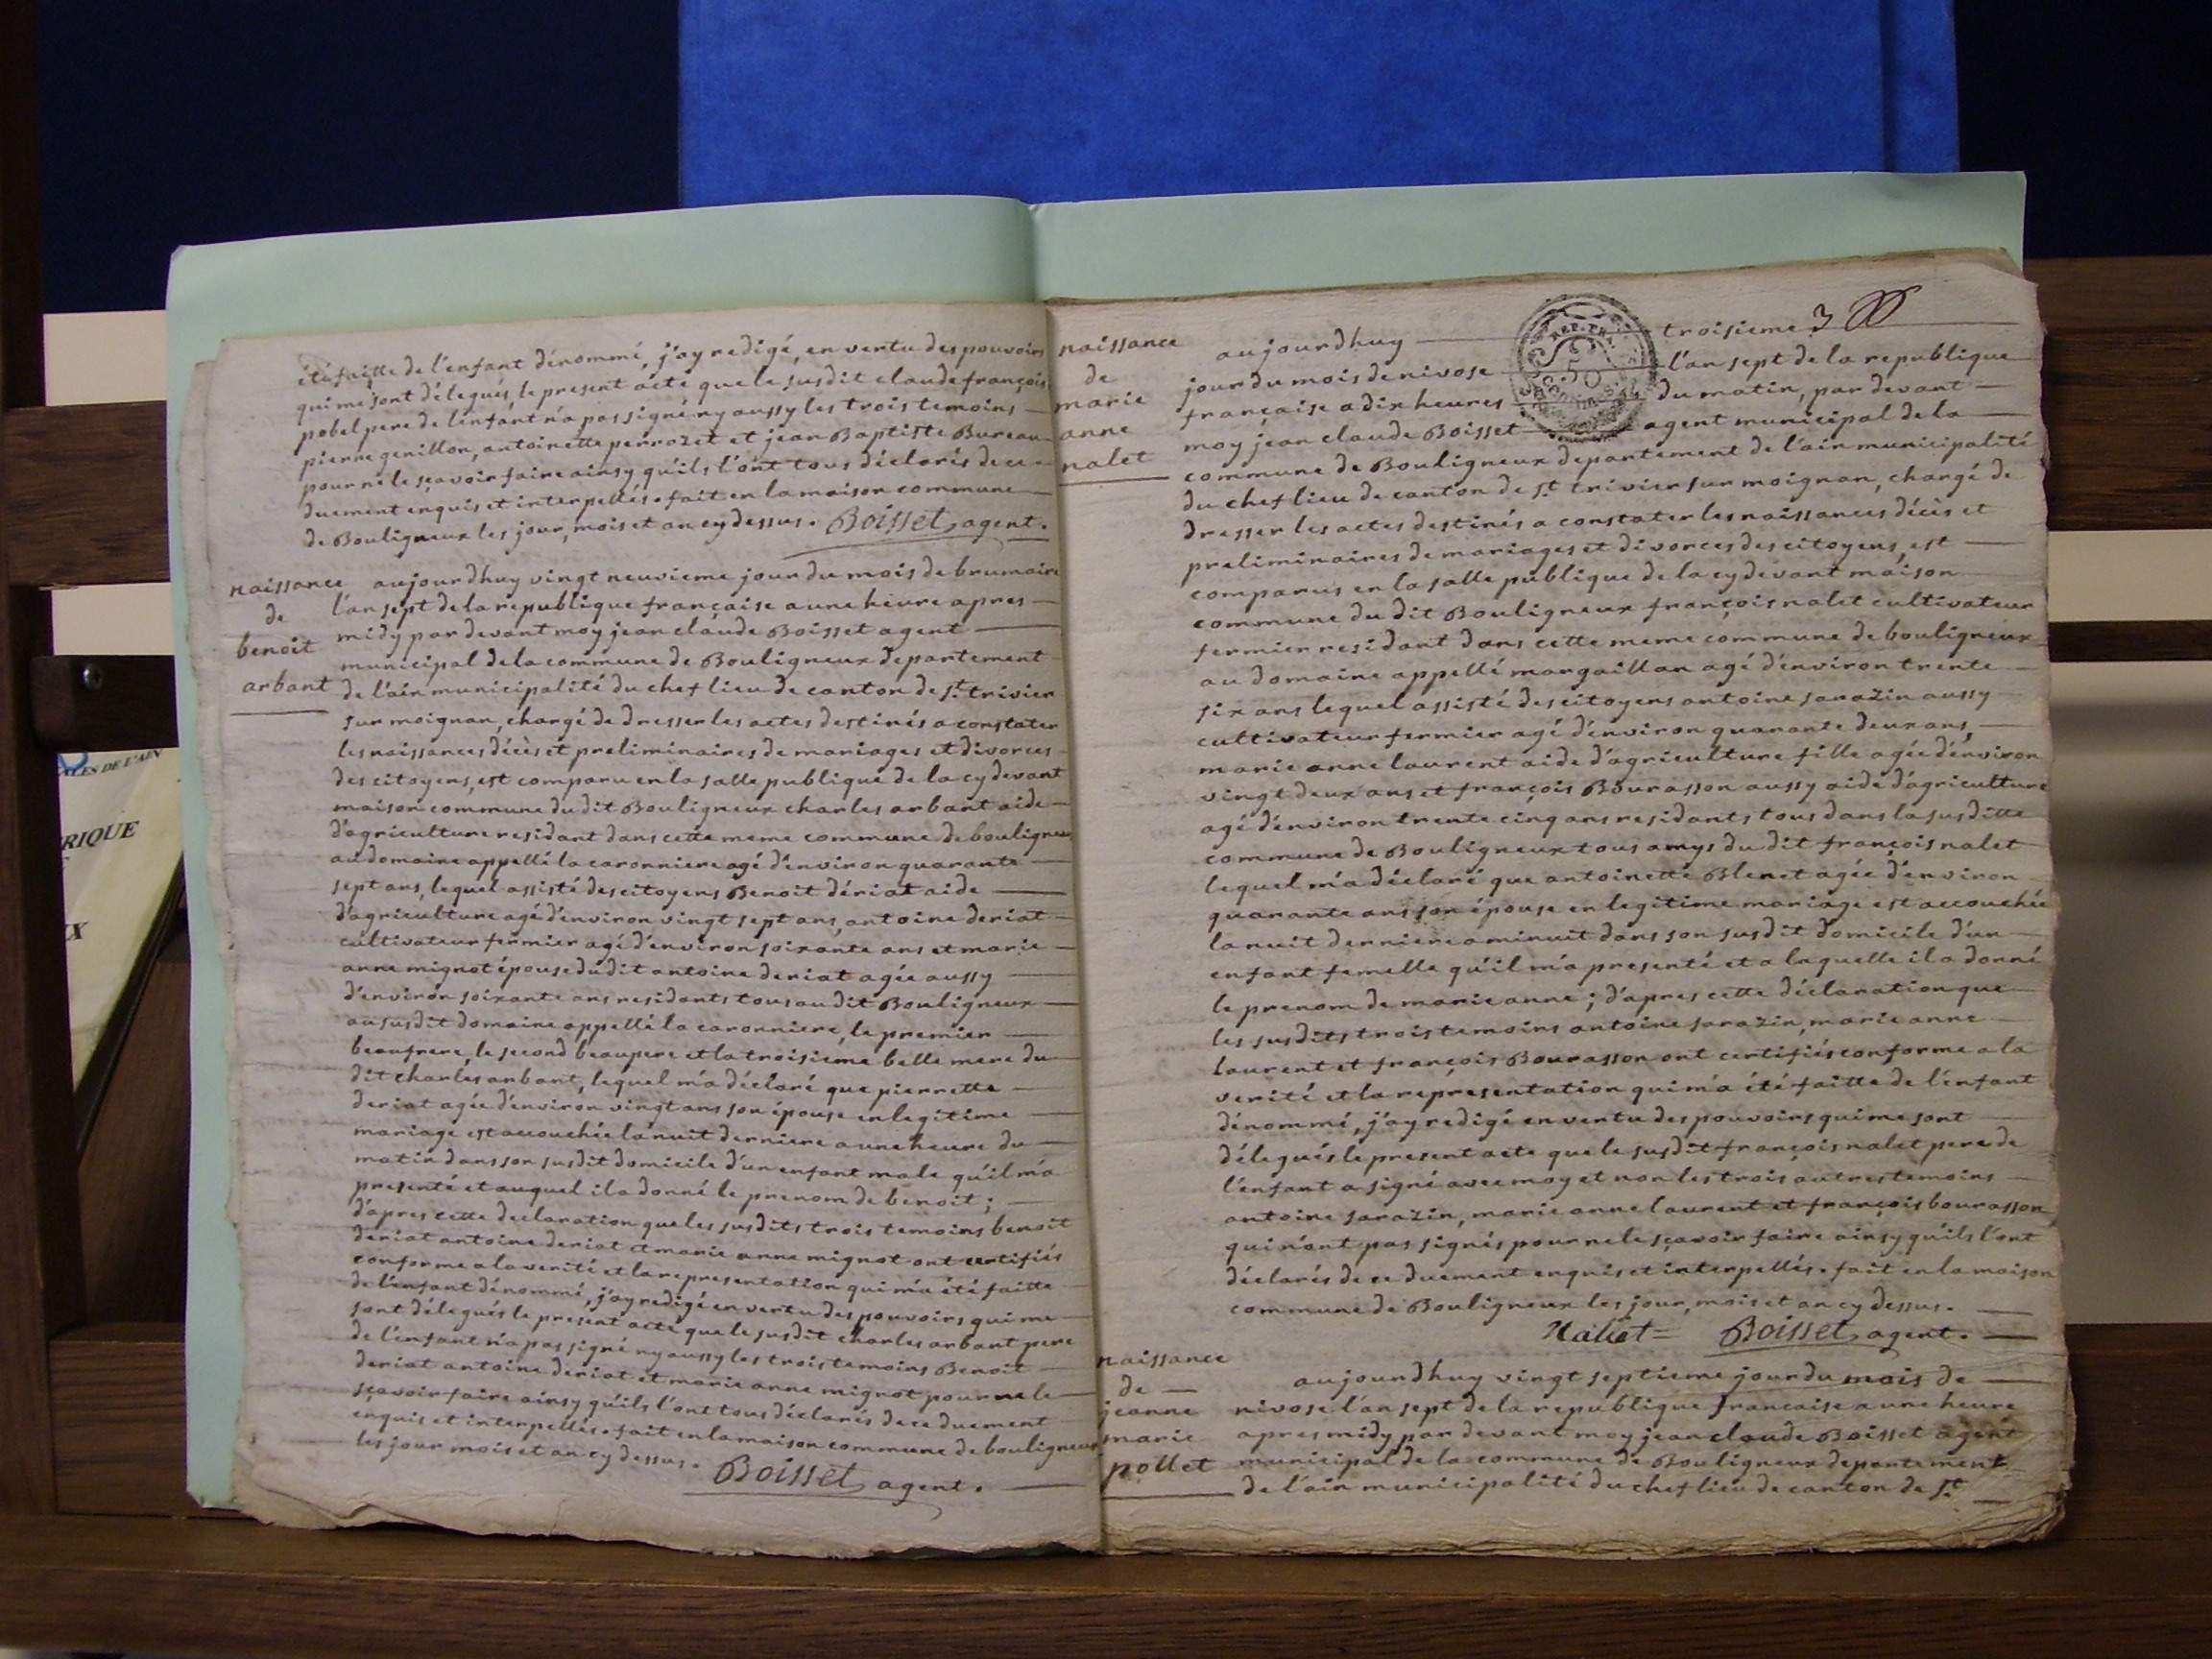 été faitte de l'enfant dénommé, j'ay redigé, en vertu des pouvoirs
qui me sont délegués, le present acte que le susdit claude françois
pobel pere de l'enfant n'a pas signé ny aussy les trois temoins
pierre genillon, antoinette perrozet et jean Baptiste Bureau
pour ne le sçavoir faire ainsy qu'ils l'ont tous déclarés de ce
duement enquis et interpellés. fait en la maison commune
de Bouligneux les jour, mois et an cy dessus. Boisset agent.
naissance
de
benoit
arbant
aujourdhuy vingt neuvieme jour du mois de brumaire
l'an sept de la republique française a une heure apres
midy par devant moy jean claude Boisset agent
municipal de la commune de Bouligneux departement
de l'ain municipalité du chef lieu de canton de St. trivier
sur moignan, chargé de dresser les actes destinés a constater
les naissances décès et preliminaires de mariages et divorces
des citoyens, est comparu en la salle publique de la cy devant
maison commune du dit Bouligneux charles arbant aide
d'agriculture residant dans cette meme commune de bouligneux
au domaine appellé la caronniere agé d'environ quarante
sept ans, lequel assisté des citoyens Benoit dériat aide
d'agriculture agé d'environ vingt sept ans, antoine deriat
cultivateur fermier agé d'environ soixante ans et marie
anne mignot épouse du dit antoine deriat agée aussy
d'environ soixante ans residants tous au dit Bouligneux
au susdit domaine appellé la caronniere, le premier
beaufrere, le second beaupere et la troisieme belle mere du
dit charles arbant, lequel m'a déclaré que pierrette
deriat agée d'environ vingt ans son épouse en legitime
mariage est accouchée la nuit derniere a une heure du
matin dans son susdit domicile d'un enfant male qu'il m'a
presenté et auquel il a donné le prenom de benoit;
d'apres cette declaration que les susdits trois temoins benoit
deriat antoine deriat et marie anne mignot ont certifiés
conforme a la verité et la representation qui m'a été faitte
de l'enfant dénommé, j'ay redigé en vertu des pouvoirs qui me
sont délegués le present acte que le susdit charles arbant pere
de l'enfant n'a pas signé ny aussy les trois temoins Benoit
deriat antoine deriat et marie anne mignot pour ne le
sçavoir faire ainsy qu'ils l'ont tous déclarés de ce duement
enquis et interpellés. fait en la maison commune de bouligneux
les jour mois et an cy dessus. Boisset agent.
naissance
de
marie
anne
nalet
aujourdhuy troisieme 3
jour du mois de nivose l'an sept de la republique
française a dix heures du matin, par devant
moy jean claude Boisset agent municipal de la
commune de Bouligneux departement de l'ain municipalité
du chef lieu de canton de St. trivier sur moignan, chargé de
dresser les actes destinés a constater les naissances décès et
preliminaires de mariages et divorces des citoyens, est
comparus en la salle publique de la cy devant maison
commune du dit Bouligneux françois nalet cultivateur
fermier residant dans cette meme commune de bouligneux
au domaine appellé margaillan agé d'environ trente
six ans lequel assisté des citoyens antoine sarazin aussy
cultivateur fermier agé d'environ quarante deux ans,
marie anne laurent aide d'agriculture fille agée d'environ
vingt deux ans et françois Bourasson aussy aide d'agriculture
agé d'environ trente cinq ans residants tous dans la susditte
commune de Bouligneux tous amys du dit françois nalet
lequel m'a déclaré que antoinette Blenet agée d'environ
quarante ans son épouse en legitime mariage est accouchée
la nuit derniere a minuit dans son susdit domicile d'un
enfant femelle qu'il m'a presenté et a laquelle il a donné
le prenom de marie anne; d'apres cette déclaration que
les susdits trois temoins antoine sarazin, marie anne
laurent et françois Bourasson ont certifiés conforme a la
verité et la representation qui m'a été faitte de l'enfant
dénommé, j'ay redigé en vertu des pouvoirs qui me sont
délegués le present acte que le susdit françois nalet pere de
l'enfant a signé avec moy et non les trois autres temoins
antoine sarazin, marie anne laurent et françois bourasson
qui n'ont pas signés pour ne le sçavoir faire ainsy qu'ils l'ont
déclarés de ce duement enquis et interpellés. fait en la maison
commune de Bouligneux les jour, mois et an cy dessus.
Naliet = Boisset agent.
naissance
de
jeanne
marie
pollet
aujourdhuy vingt septieme jour du mois de
nivose l'an sept de la republique francaise a une heure
apres midy par devant moy jean claude Boisset agent
municipal de la commune de Bouligneux departement
de l'ain municipalité du chef lieu de canton de St.
REP. FR.
LES DE L'AIN
RIQUE
X